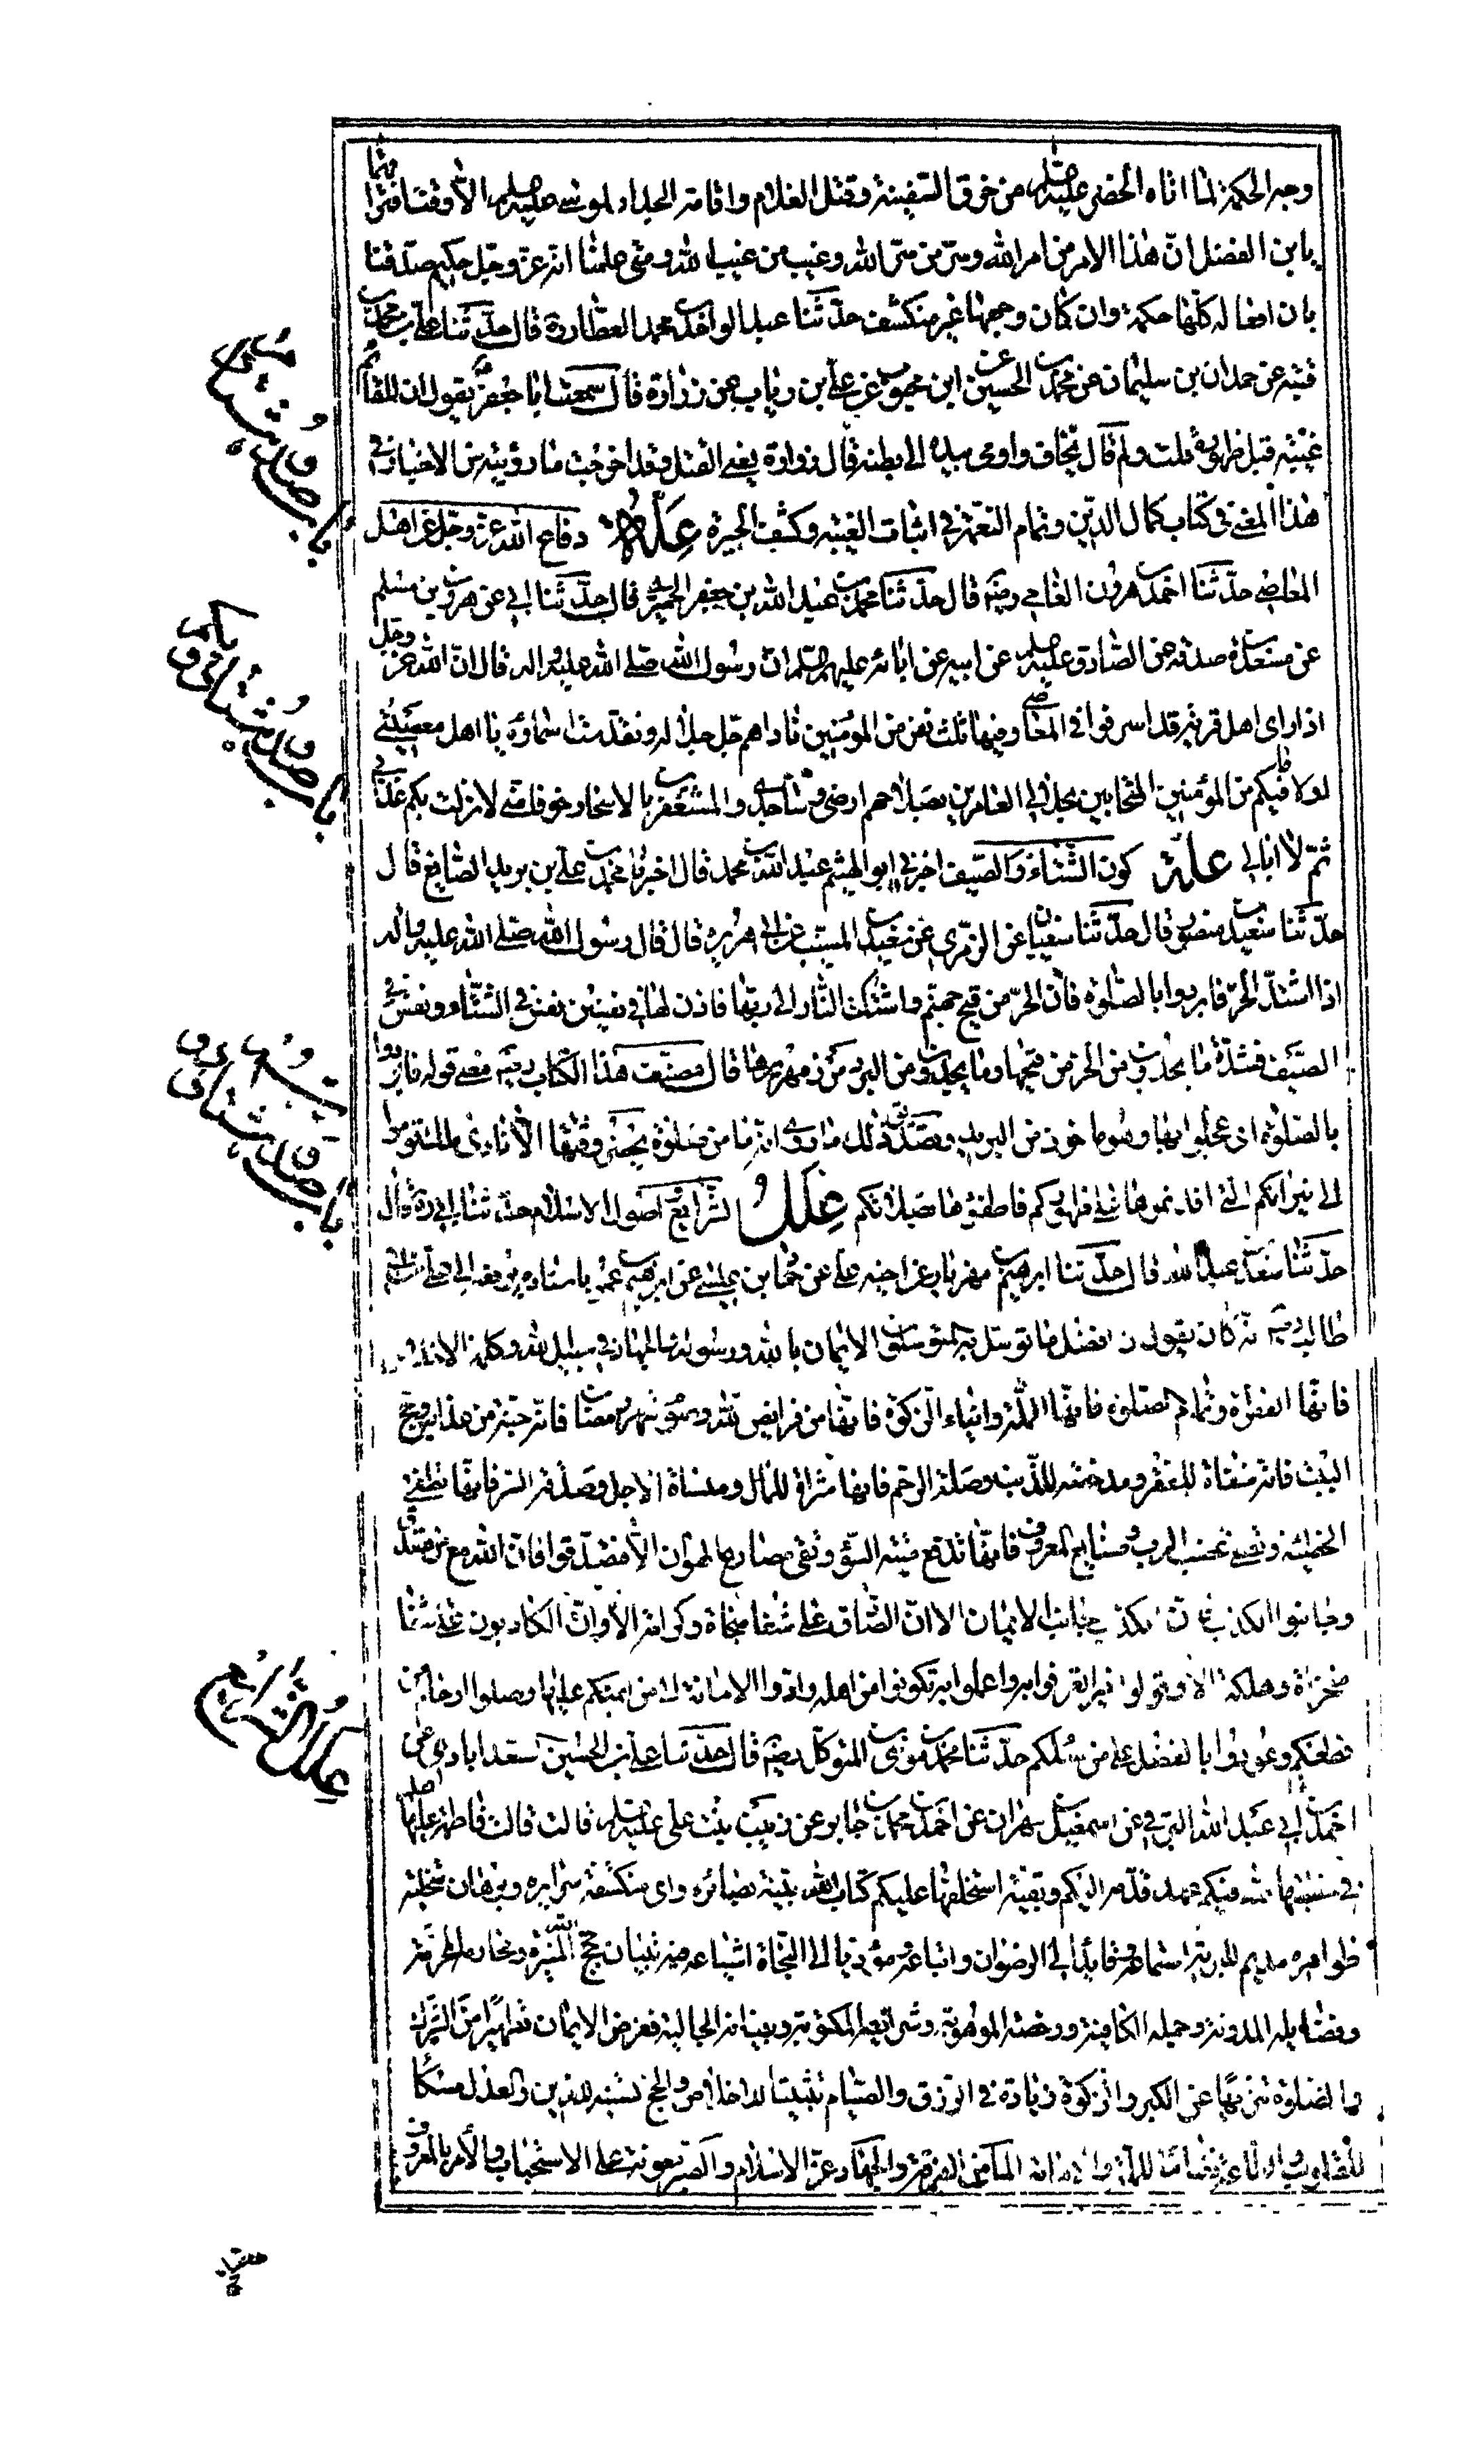 وجه الحكمة لما اتاه الخضر عليه السلم من خرق السفينة وقتل الغلام واقامة الجدار لموسى عليه السلم الا وقت افتراقهما
يا بن الفضل ان هذا الامر من امر الله وسر من سر الله وغيب من غيب الله ومتى علمنا انه عز وجل حكيم صدقنا
بان افعاله كلها حكمة وان كان وجهها غير منكشف حدثنا عبد الواحد بن محمد العطار ره قال حدثنا علي بن محمد بن
قتيبه عن حمدان بن سليمان عن محمد بن الحسين عن ابن محبوب عن علي بن رياب عن زرارة قال سمعت ابا جعفر يقول ان للقائم
غيبة قبل ظهوره قلت ولم قال يخاف واومى بيده الى بطنه قال زرارة يعنى القتل وقد اخرجت ما رويته من الاخبار في
هذا المعنى في كتاب كمال الدين وتمام النعمة في اثبات الغيبة وكشف الحيرة علة دفاع الله عز وجل عن اهل
المعاصي حدثنا احمد بن هرون الفامي رضه قال حدثنا محمد بن عبد الله بن جعفر الحميري قال حدثنا ابي عن هرون بن مسلم
عن مسعدة بن صدقه عن الصادق عليه السلم عن ابيه عن ابائه عليهم السلم ان رسول الله صلى الله عليه واله قال ان الله عز وجل
اذا راى اهل قرية قد اسرفوا في المعاصي وفيها ثلث نفر من المؤمنين ناداهم جل جلاله وتقدست اسماؤه يا اهل معصيتي
لولا ما فيكم من المؤمنين المتحابين بجلالي العامرين بصلاتهم ارضي ومساجدي والمستغفرين بالاسحار خوفا مني لانزلت بكم عذابي
ثم لا ابالي علة كون الشتاء والصيف اخبرني ابو الهيثم عبد الله بن محمد قال اخبرنا محمد بن علي بن يزيد الصايغ قال
حدثنا سعيد بن منصور قال حدثنا سفيان عن الزهري عن سعيد بن المسيب عن ابي هريرة قال قال رسول الله صلى الله عليه واله
اذا اشتد الحر فابردوا بالصلوة فان الحر من فيح جهنم واشتكت النار الى ربها فاذن لها في نفسين نفس في الشتاء ونفس في
الصيف فشدة ما يجدون من الحر من فيحها وما يجدون من البرد من زمهريرها قال مصنف هذا الكتاب رضه معنى قوله فابردوا
بالصلوة اى عجلوا بها وهو ماخوذ من البريد وتصديق ذلك ما روى انه ما من صلوة يحضر وقتها الا نادى ملك قوموا
الى نيرانكم التي اوقدتموها على ظهوركم فاطفئوها بصلاتكم علل الشرايع واصول الاسلام حدثنا ابي ره قال
حدثنا سعد بن عبد الله قال حدثنا ابرهيم بن مهزيار عن اخيه علي عن حماد بن عيسى عن ابرهيم بن عمر باسناده يرفعه الى علي بن ابي
طالب انه كان يقول ان افضل ما توسل به المتوسلون الايمان بالله ورسوله والجهاد في سبيل الله وكلمة الاخلاص
فانها الفطرة وتمام الصلوة فانها الملة وايتاء الزكوة فانها من فرايض الله وصوم شهر رمضان فانه جنة من عذابه وحج
البيت فانه منفاة للفقر ومدحضة للذنب وصلة الرحم فانها مثراة للمال ومنساة للاجل وصدقة السر فانها تطفئ
الخطيئة وتطفئ غضب الرب وصنايع المعروف فانها تدفع ميتة السوء وتقي مصارع الهوان الا فصدقوا فان الله مع من صدق
وجانبوا الكذب فان الكذب يجانب الايمان الا ان الصادق على شفا منجاة وكرامة الا وان الكاذب على شفا
مخزاة وهلكة الا وقولوا خيرا تعرفوا به واعملوا به تكونوا من اهله وادوا الامانة الى من ائتمنكم عليها وصلوا ارحام من
قطعكم وعودوا بالفضل على من سالكم حدثنا محمد بن موسى بن المتوكل رضه قال حدثنا علي بن الحسين السعدابادي عن
احمد بن ابي عبد الله البرقي عن اسمعيل بن مهران عن احمد بن محمد بن جابر عن زينب بنت علي عليه السلم قالت قالت فاطمة عليها السلم
في خطبتها لله فيكم عهد قدمه اليكم وبقية استخلفها عليكم كتاب الله بينة بصائره واى منكشفة سرايره وبرهان متجلية
ظواهره مديم للبرية استماعه وقائدا الى الرضوان واتباعه ومؤديا الى النجاة اشياعه فيه تبيان حجج الله المنيرة ومحارمه المحرمة
وفضايله المدونة وجمله الكافية ورخصه الموهوبة وشرايعه المكتوبة وبيناته الجالية ففرض الايمان تطهيرا من الشرك
والصلوة تنزيها عن الكبر والزكوة زيادة في الرزق والصيام تثبيتا للاخلاص والحج تسنية للدين والعدل مسكا
للقلوب والطاعة نظاما للملة والامامة لما من الفرقة والجهاد عزا للاسلام والصبر معونة على الاستيجاب والامر بالمعروف
باب صد و
باب صد و
باب صد و
علل الشرايع